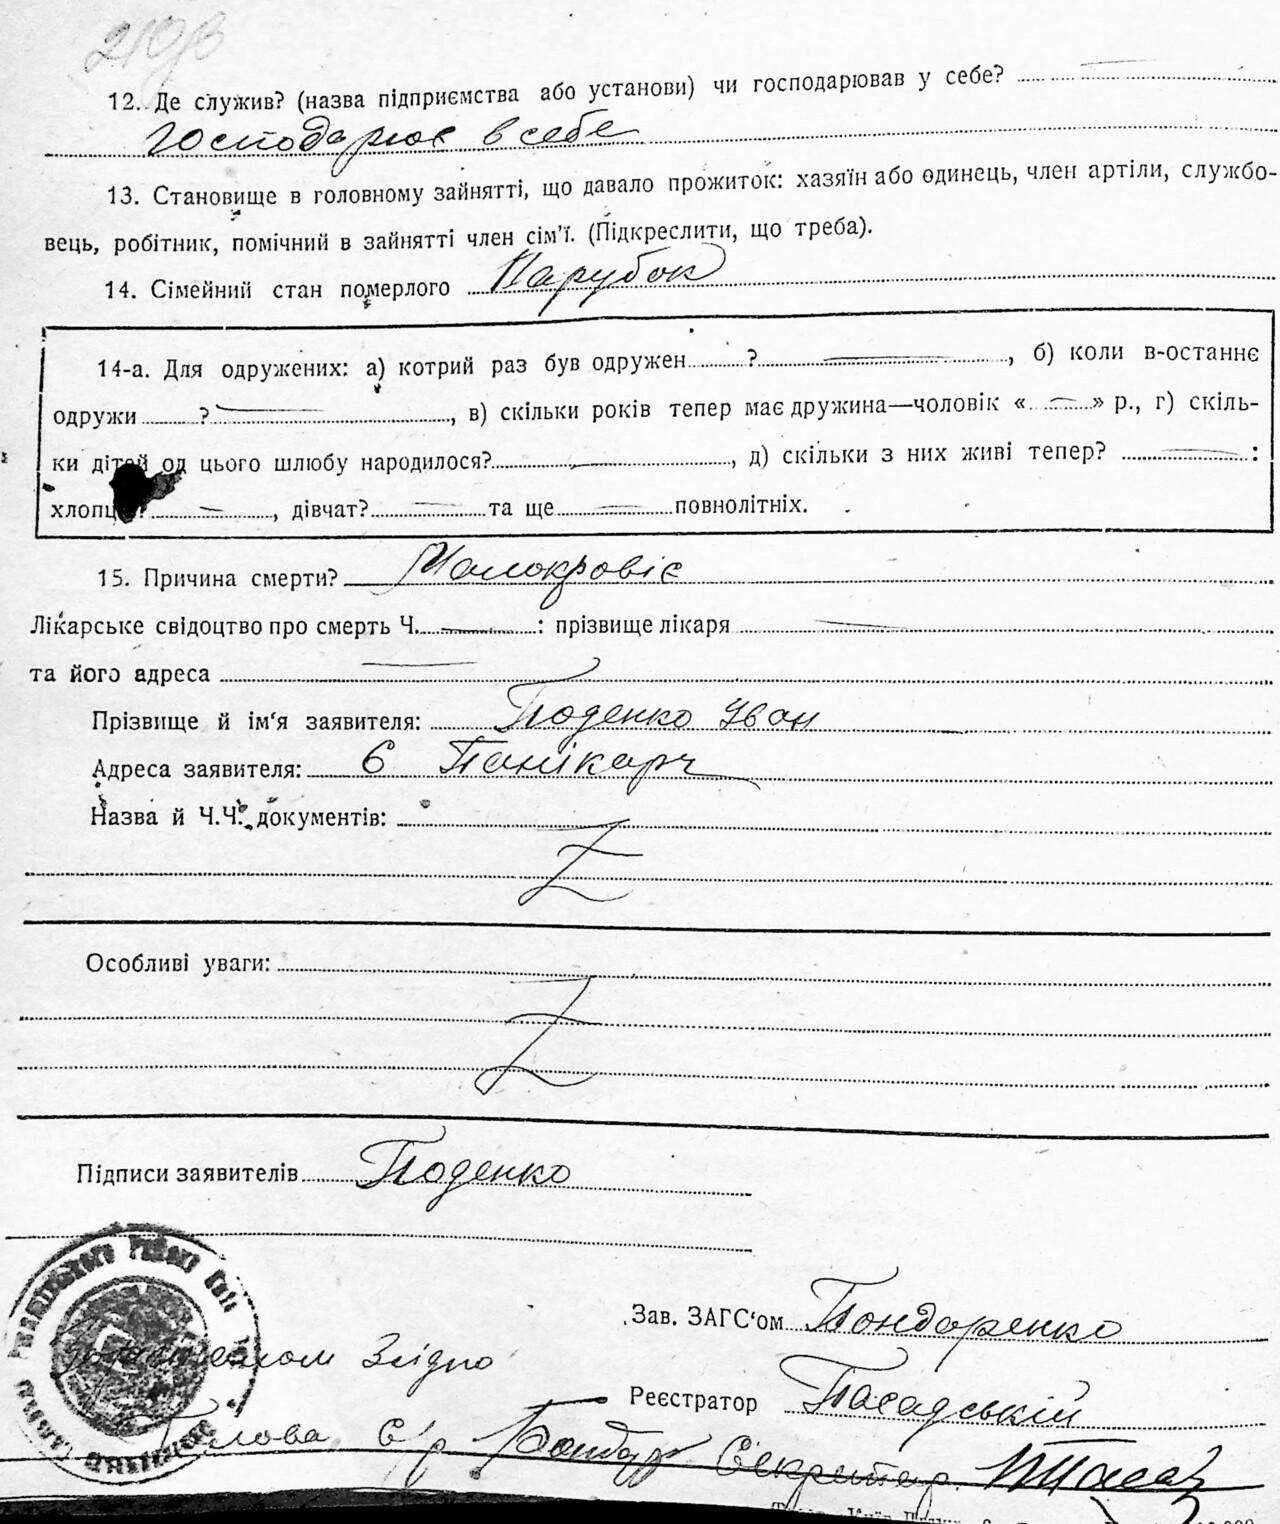 12. Де служив? (назва підприємства або установи) чи господарював у себе?
Господарює в себе
13. Становище в головному зайнятті, що давало прожиток: хазяїн або одинець, член артіли, службо-
вець, робітник, помічний в зайнятті член сім'ї. (Підкреслити, що треба).
14. Сімейний стан померлого Парубок
14-а. Для одружених: а) котрий раз був одружен ?, б) коли в-останнє
одружи ?, в) скільки років тепер має дружина—чоловік « » р., г) скіль-
ки дітей од цього шлюбу народилося?, д) скільки з них живі тепер? :
хлопц ?, дівчат? та ще повнолітніх.
15. Причина смерти? Малокровіє
Лікарське свідоцтво про смерть Ч. : прізвище лікаря
та його адреса
Прізвище й ім'я заявителя: Іван
Адреса заявителя: с
Назва й Ч.Ч. документів:
Особливі уваги:
Підписи заявителів
Зав. ЗАГС'ом Бондаренко
Згідно
Реєстратор Посадській
Голова с/р Бондар Секретар